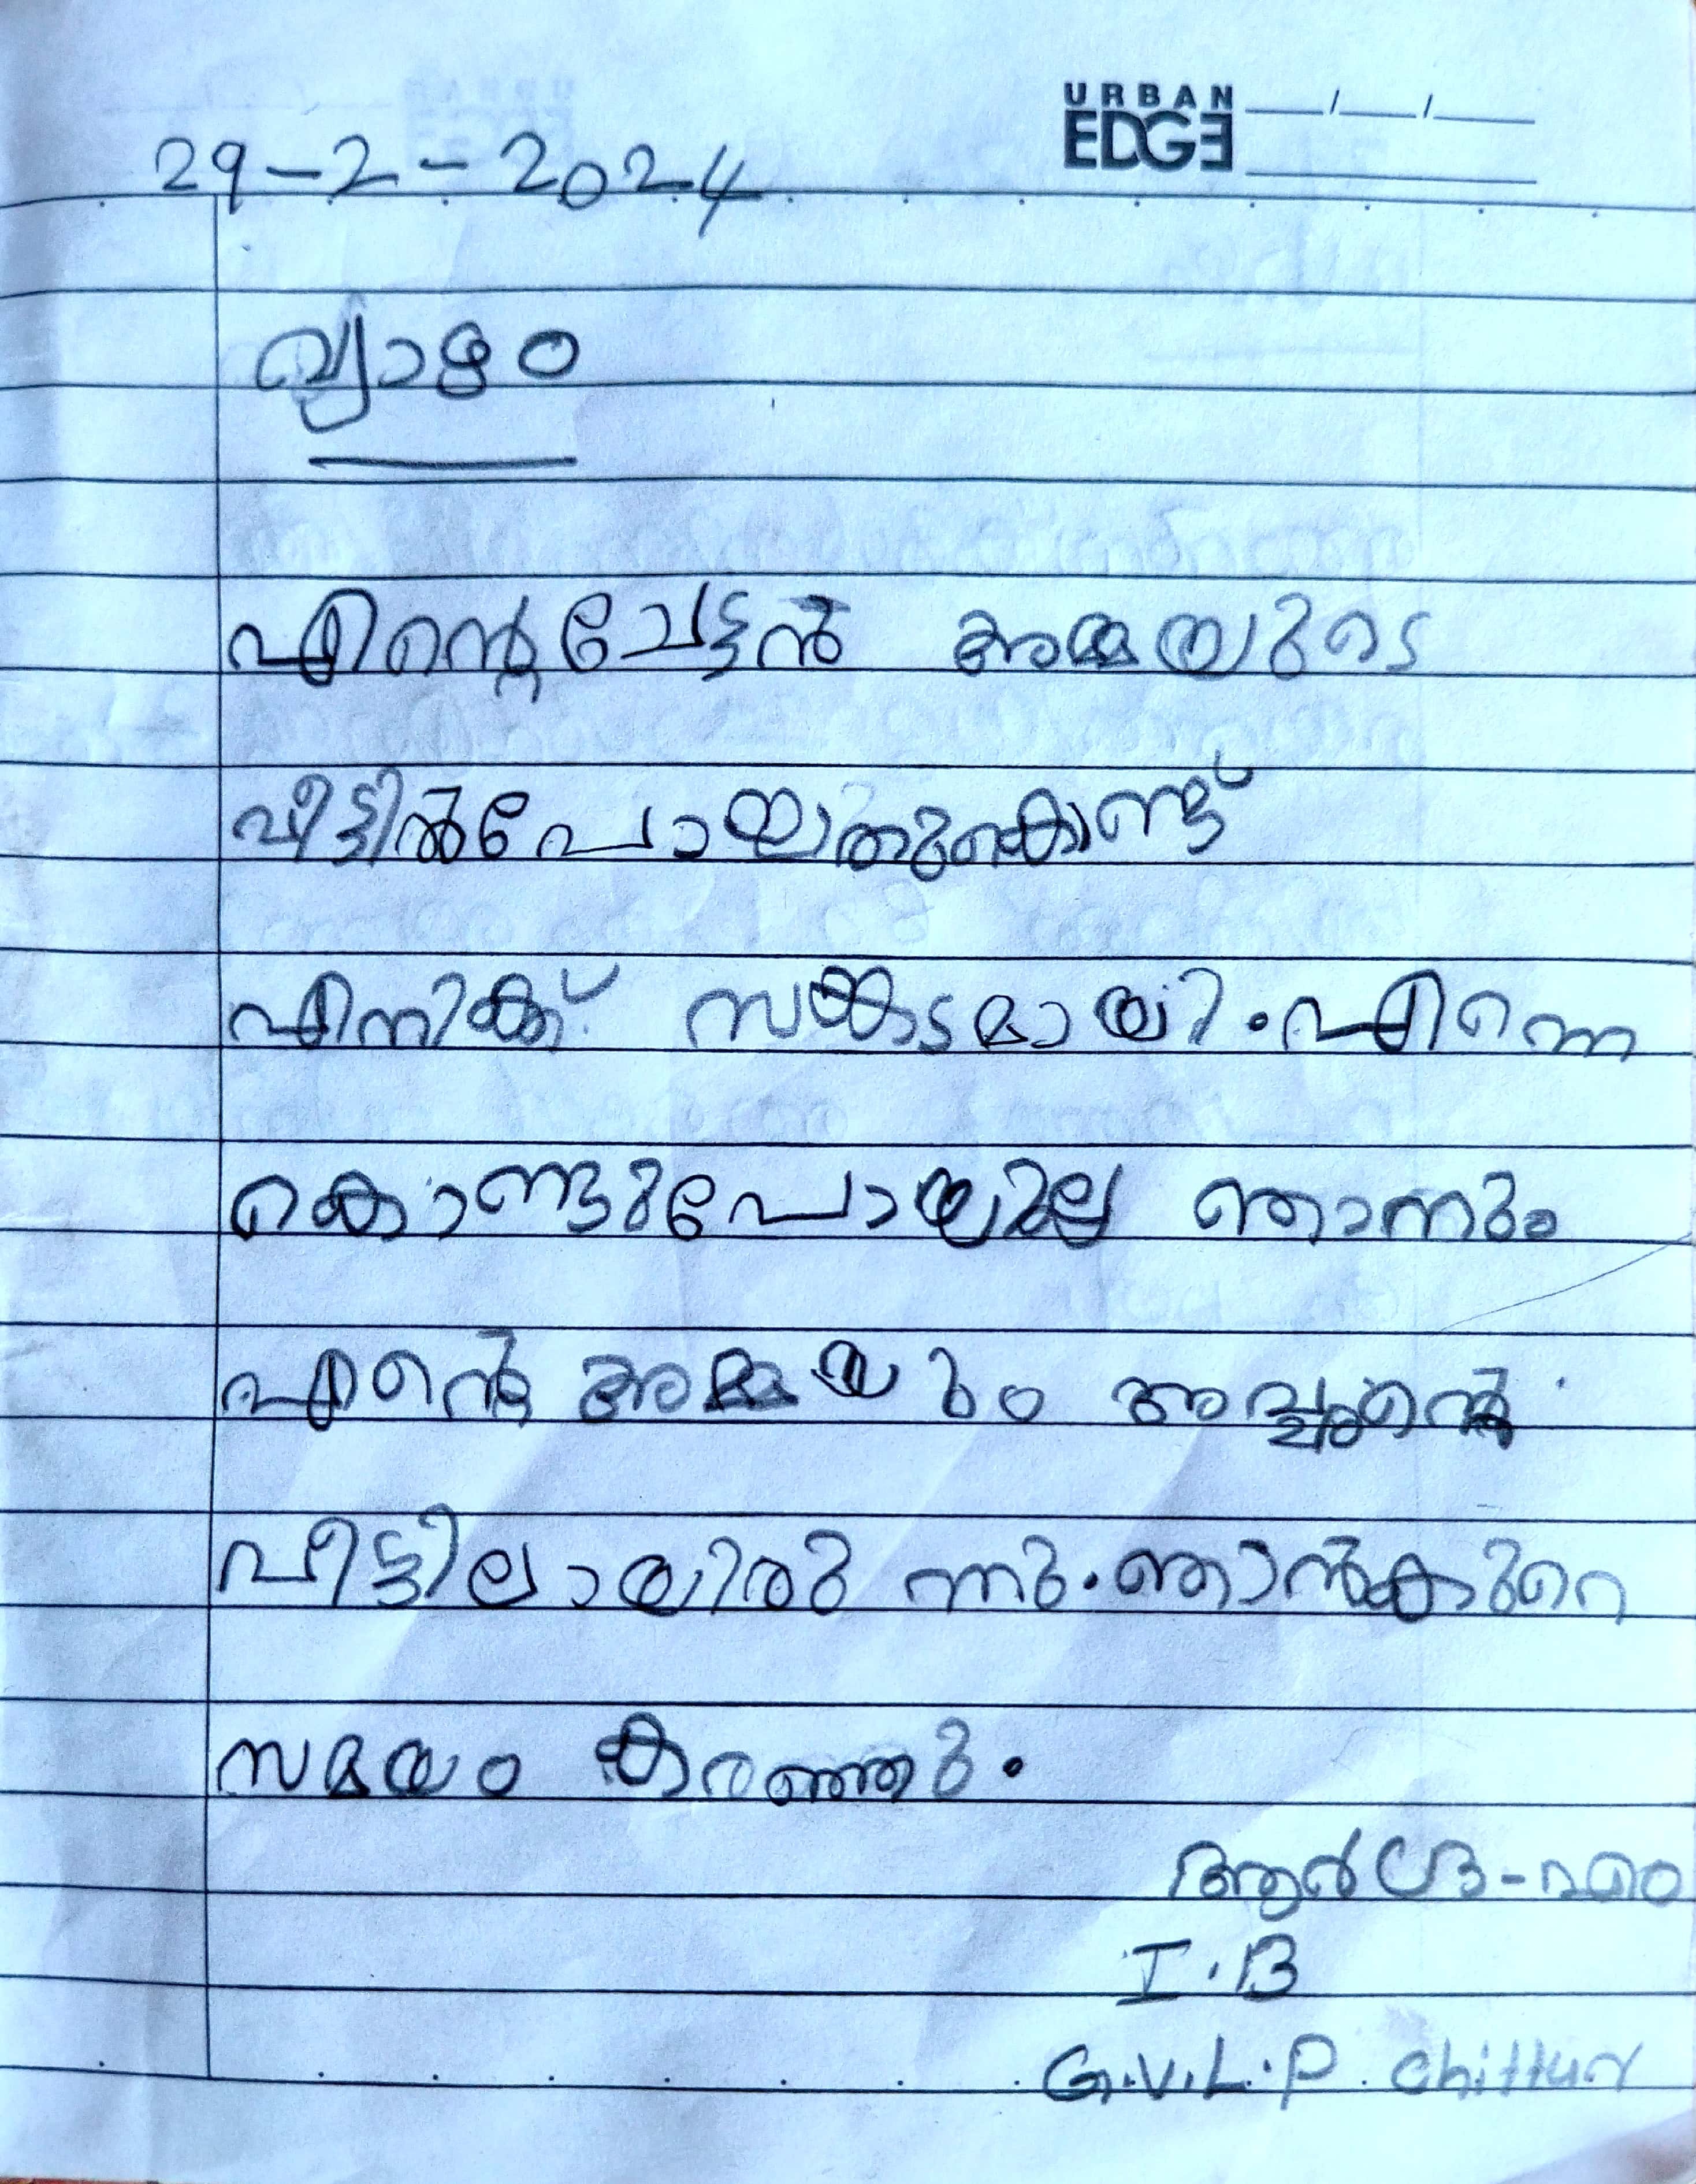 URBAN
EDGE
29-2-2024
വ്യാഴം
എന്റെ ചേട്ടൻ അമ്മയുടെ
വീട്ടിൽ പോയതുകൊണ്ട്
എനിക്ക് സങ്കടമായി. എന്നെ
കൊണ്ടുപോയില്ല ഞാനും
എന്റെ അമ്മയും അച്ഛന്റെ
വീട്ടിലായിരുന്നു. ഞാൻ കുറെ
സമയം കരഞ്ഞു.
ആൻഡ്ര - എം
I.B
G.V.L.P. Chittur